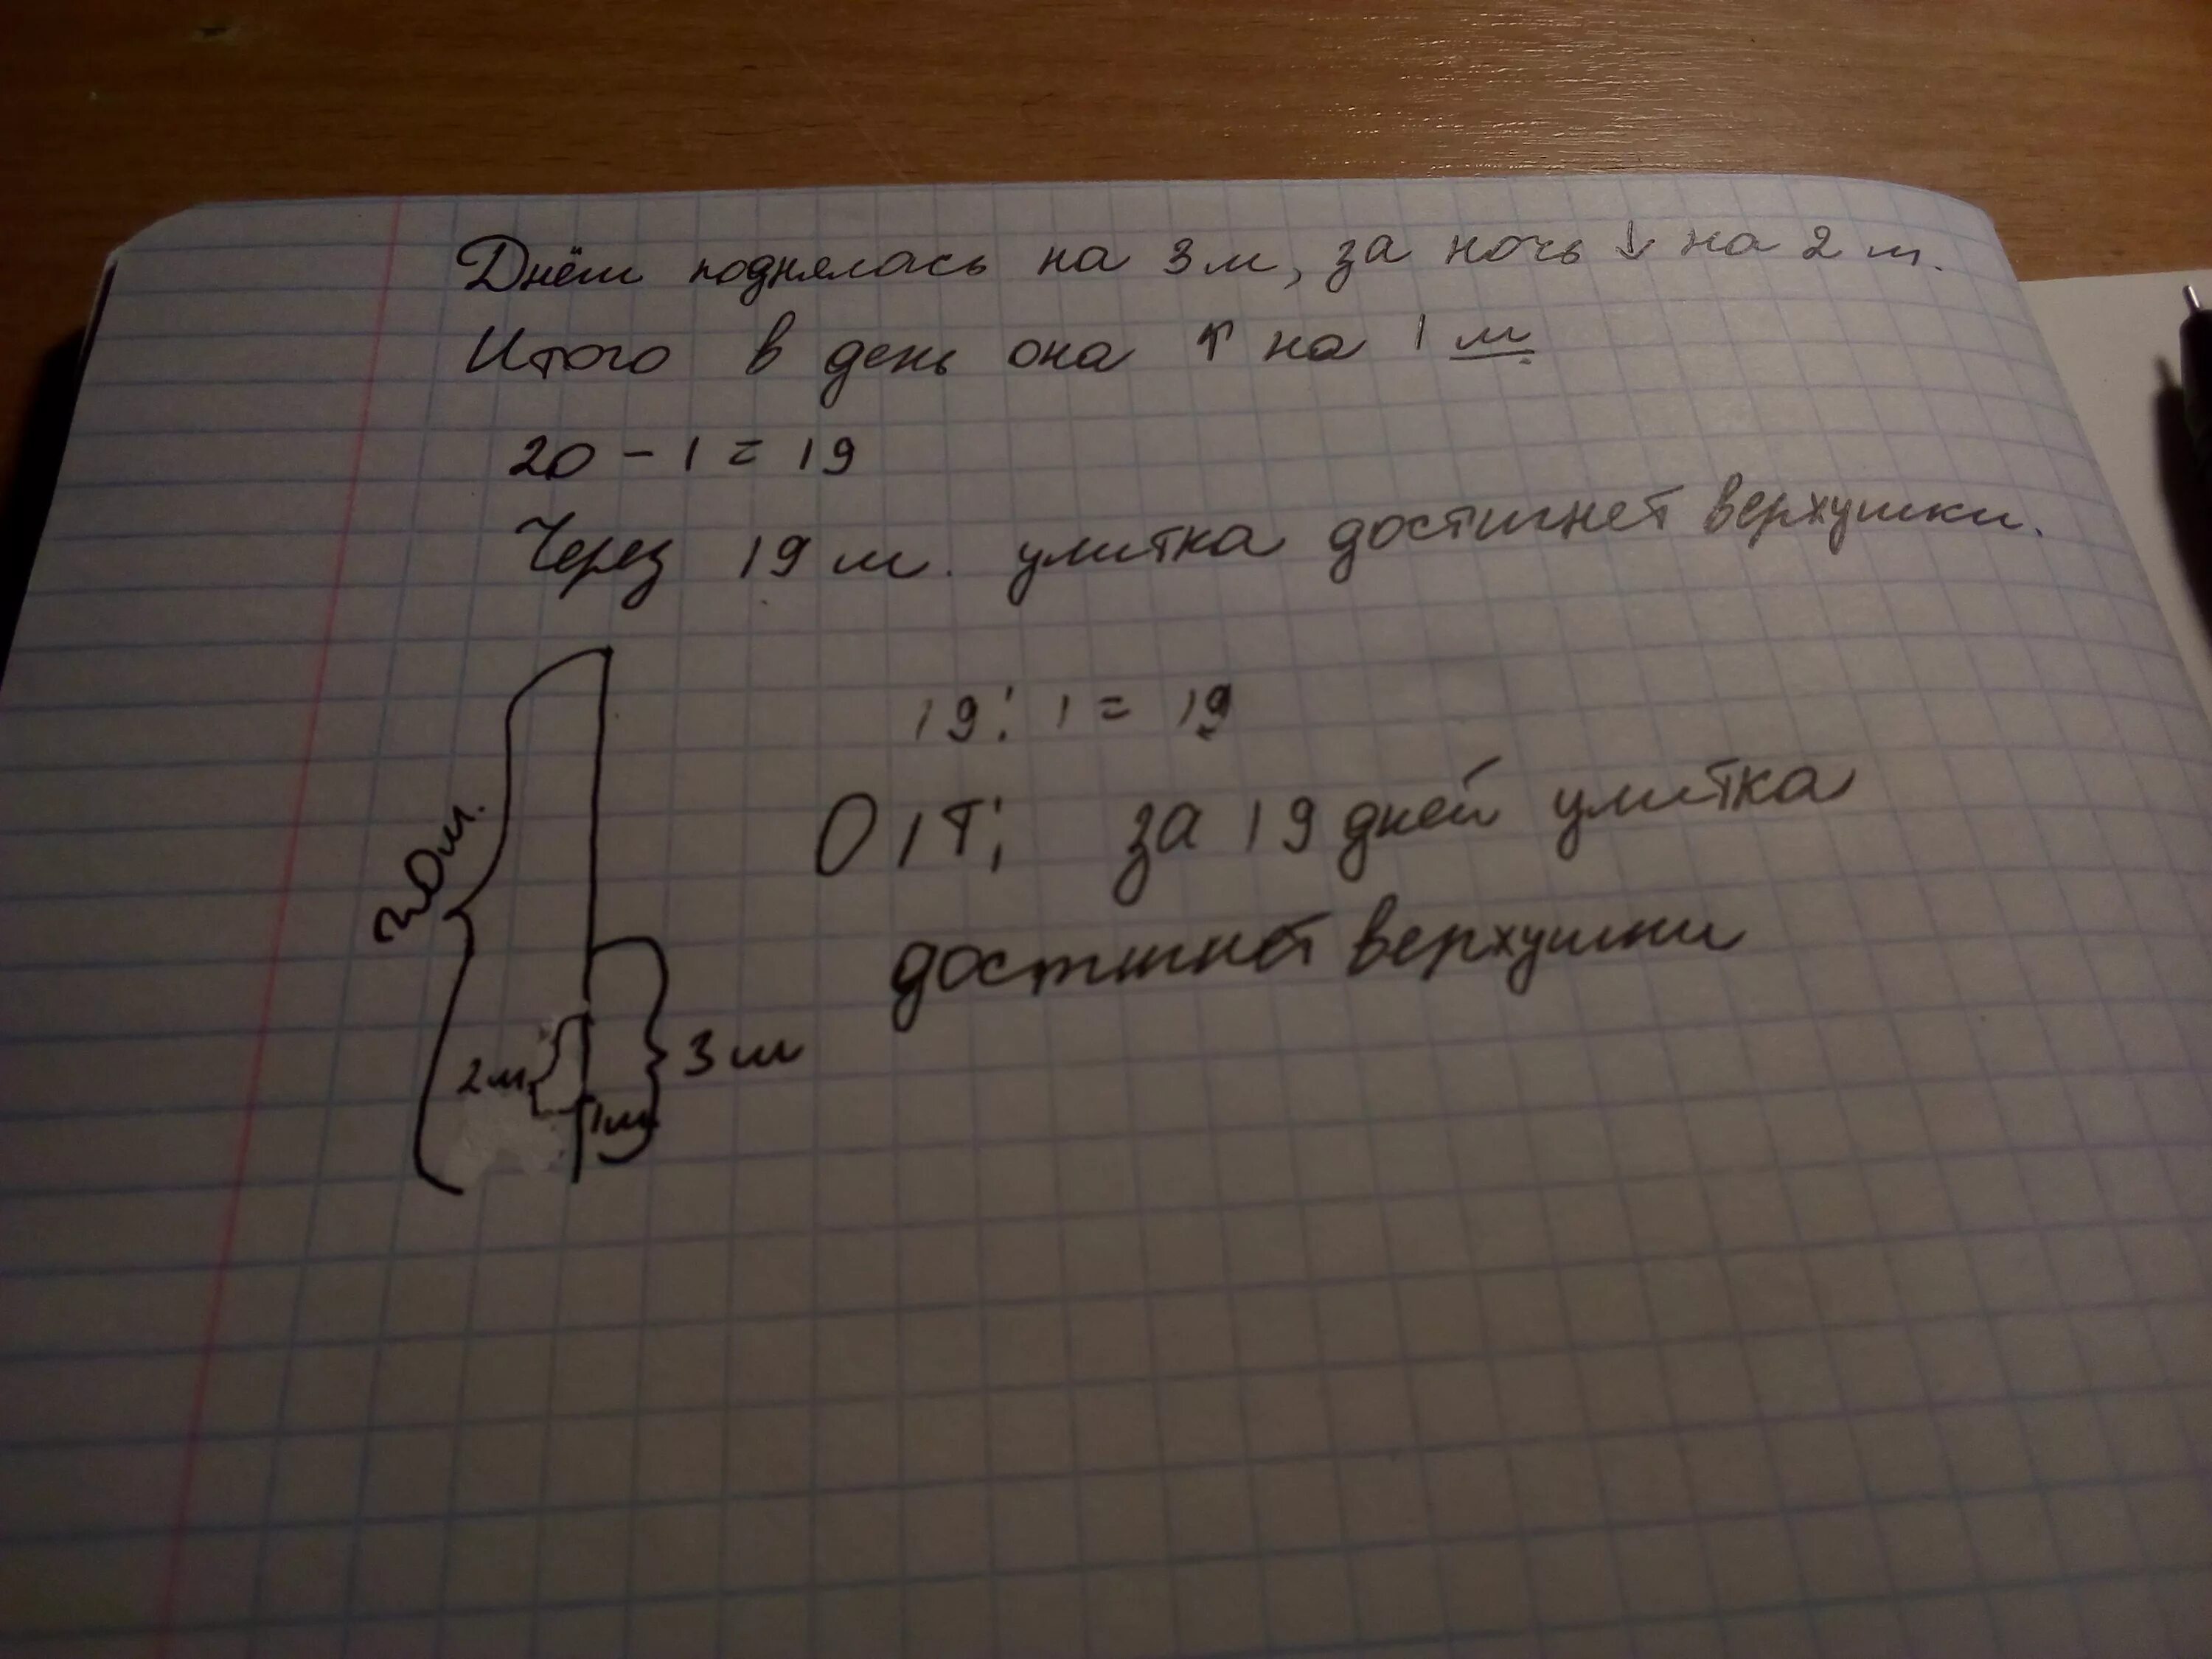 Днём поднялась на 3 м, за ночь ↓ на 2 м.
Итого в день она ↑ на 1 м
20 - 1 = 19
Через 19 м. улитка достигнет верхушки.
20 м.
19 : 1 = 19
О/Т: за 19 дней улитка
достигнет верхушки
2 м
3 м
1 м